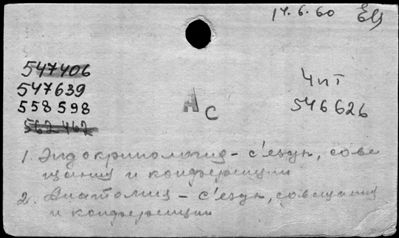 14.6.60
547406
547639
558598
562462
АС
Чит
546626
1. Эндокринология - съезды, сове
щания и конференции
2. Анатомия - съезды, совещания
и конференции